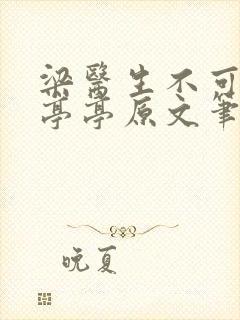 梁醫生不可
亭亭原文筆
晚夏